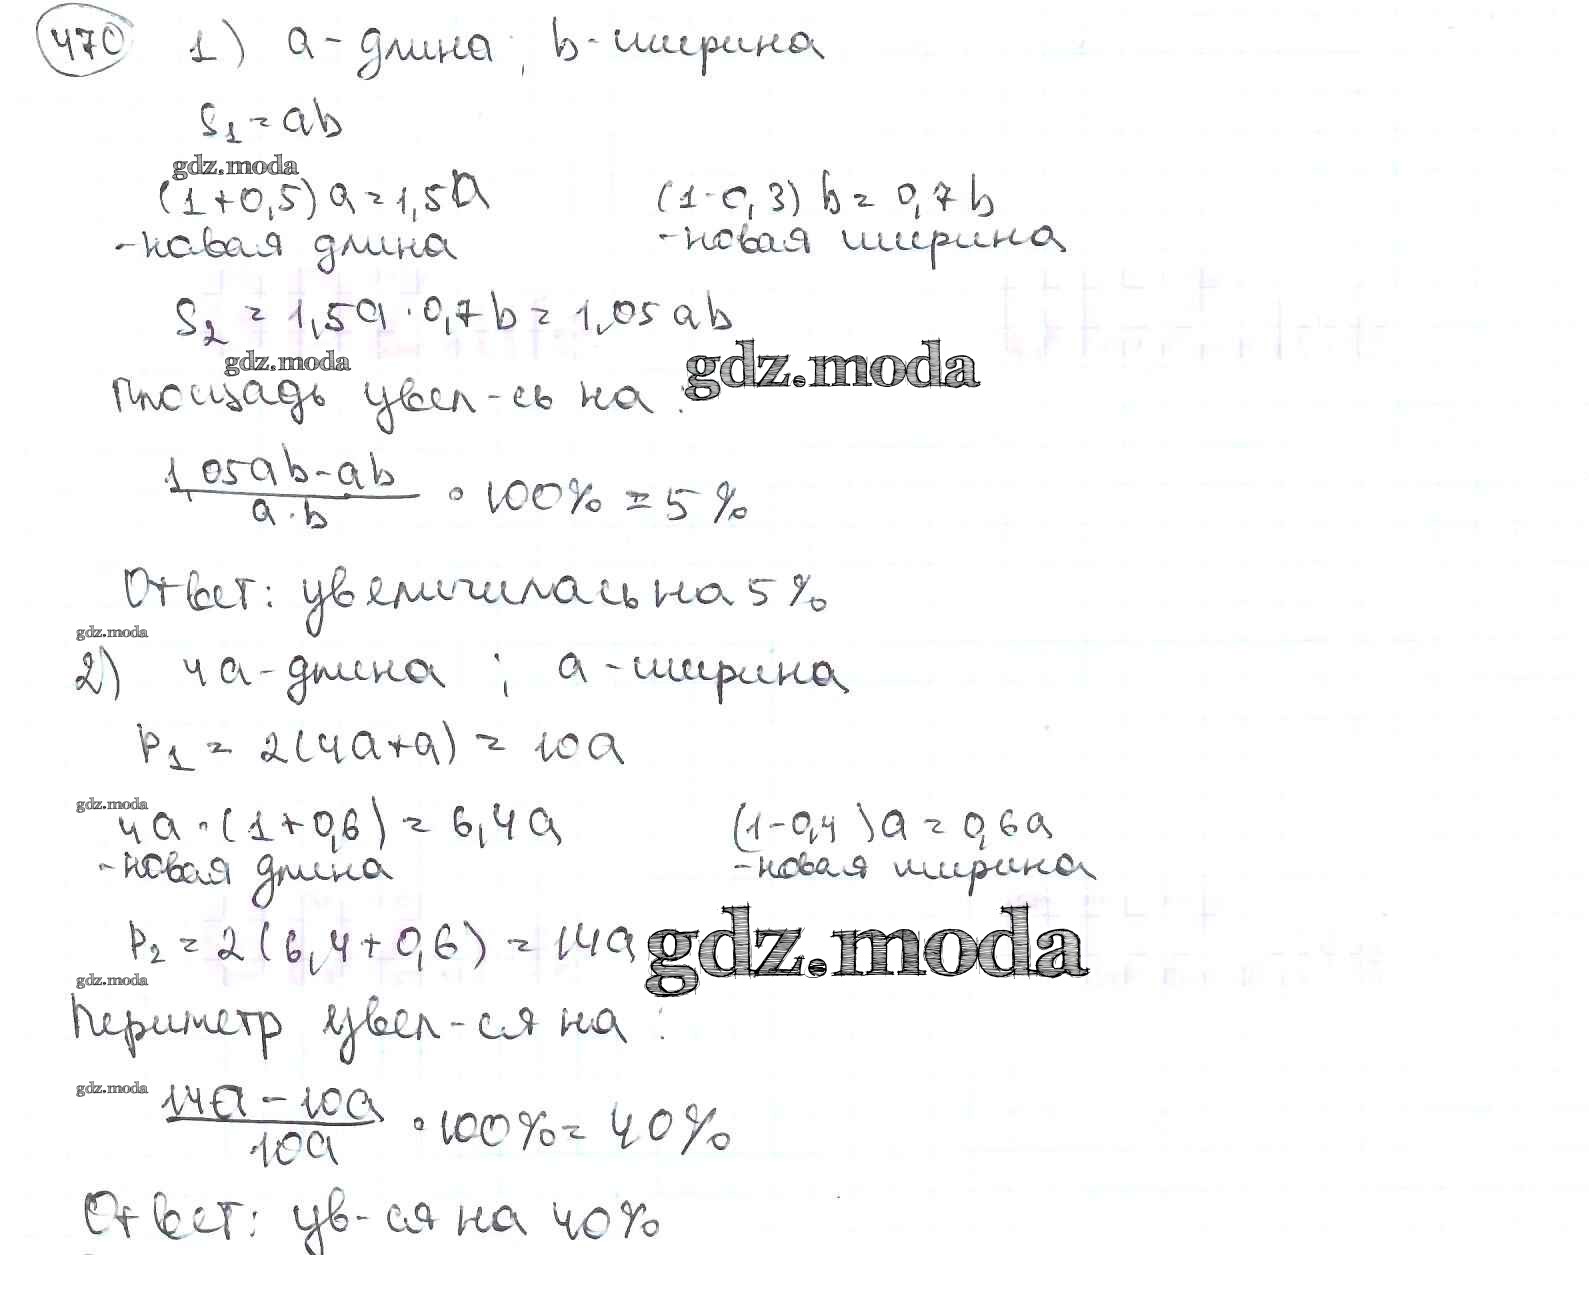 470 1) a - длина; b - ширина
S₁ = ab
gdz.moda
(1+0,5) a = 1,5a (1-0,3) b = 0,7b
- новая длина - новая ширина
S₂ = 1,5a · 0,7b = 1,05ab
gdz.moda gdz.moda
Площадь увел-сь на:
1,05ab - ab
a · b
· 100% = 5%
Ответ: увеличилась на 5%
gdz.moda
2) 4a - длина ; a - ширина
P₁ = 2(4a+a) = 10a
gdz.moda
4a · (1+0,6) = 6,4a (1-0,4)a = 0,6a
- новая длина - новая ширина
P₂ = 2(6,4+0,6) = 14a gdz.moda
gdz.moda
Периметр увел-ся на:
gdz.moda
14a - 10a
10a
· 100% = 40%
Ответ: ув-ся на 40%